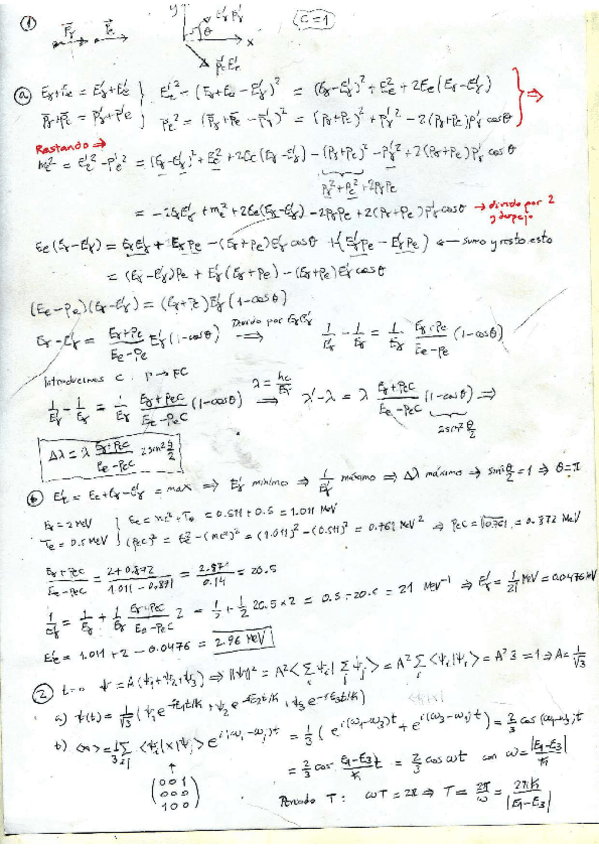 ① P⃗γ P⃗e y x θ E'γ P'γ P'e E'e C=1
ⓐ Eγ+Ee = E'γ+E'e } E'e² = (Eγ+Ee−E'γ)² = (Eγ−E'γ)² + Ee² + 2Ee(Eγ−E'γ)
P⃗γ+P⃗e = P⃗'γ+P⃗'e } P'e² = (P⃗γ+P⃗e−P⃗'γ)² = (Pγ+Pe)² + P'γ² − 2(Pγ+Pe)P'γ cosθ ⇒
Restando ⇒
me² = E'e² − P'e² = (Eγ−E'γ)² + Ee² + 2Ee(Eγ−E'γ) − (Pγ+Pe)² − P'γ² + 2(Pγ+Pe)P'γ cosθ
Pγ²+Pe²+2PγPe
= −2EγE'γ + me² + 2Ee(Eγ−E'γ) − 2PγPe + 2(Pγ+Pe)P'γ cosθ → divido por 2 y despejo
Ee(Eγ−E'γ) = EγE'γ + EγPe − (Eγ+Pe)E'γ cosθ + (E'γPe − E'γPe) ← sumo y resto esto
= (Eγ−E'γ)Pe + E'γ(Eγ+Pe) − (Eγ+Pe)E'γ cosθ
(Ee−Pe)(Eγ−E'γ) = (Eγ+Pe)E'γ(1−cosθ)
Eγ−E'γ = (Eγ+Pe)/(Ee−Pe) E'γ(1−cosθ) Divido por EγE'γ ⟹ 1/E'γ − 1/Eγ = 1/Eγ (Eγ+Pe)/(Ee−Pe) (1−cosθ)
Introducimos C: P→PC
1/E'γ − 1/Eγ = 1/Eγ (Eγ+PeC)/(Ee−PeC) (1−cosθ) λ=hc/E ⟶ λ'−λ = λ (Eγ+PeC)/(Ee−PeC) (1−cosθ) ⟹
2sin²θ/2
Δλ = λ (Eγ+PeC)/(Ee−PeC) 2sin²θ/2
ⓑ E'e = Ee+Eγ−E'γ = max ⇒ E'γ mínimo ⇒ 1/E'γ máximo ⇒ Δλ máximo ⇒ sin²θ/2 = 1 ⇒ θ=π
Eγ = 2 MeV { Ee = mc²+Te = 0.511+0.5 = 1.011 MeV
Te = 0.5 MeV { (PeC)² = Ee²−(mc²)² = (1.011)²−(0.511)² = 0.761 MeV² ⇒ PeC = √0.761 = 0.872 MeV
(Eγ+PeC)/(Ee−PeC) = (2+0.872)/(1.011−0.871) = 2.871/0.14 = 20.5
1/E'γ = 1/Eγ + 1/Eγ (Eγ+PeC)/(Ee−PeC) 2 = 1/2 + 1/2 20.5×2 = 0.5+20.5 = 21 MeV⁻¹ ⇒ E'γ = 1/21 MeV = 0.0476 MeV
E'e = 1.011+2−0.0476 = 2.96 MeV
② t=0 ψ = A(ψ₁+ψ₂+ψ₃) ⇒ ‖ψ‖² = A²⟨∑ψᵢ|∑ψⱼ⟩ = A²∑⟨ψᵢ|ψᵢ⟩ = A²3 = 1 ⇒ A = 1/√3
a) ψ(t) = 1/√3 (ψ₁e^(−iE₁t/ħ) + ψ₂e^(−iE₂t/ħ) + ψ₃e^(−iE₃t/ħ))
b) ⟨x⟩ = 1/3 ∑ᵢⱼ ⟨ψᵢ|x|ψⱼ⟩ e^(i(ωᵢ−ωⱼ)t) = 1/3 (e^(i(ω₁−ω₃)t) + e^(i(ω₃−ω₁)t)) = 2/3 cos(ω₁−ω₃)t
= 2/3 cos (E₁−E₃)/ħ t = 2/3 cosωt con ω = |E₁−E₃|/ħ
(0 0 1
0 0 0
1 0 0)
Periodo T: ωT = 2π ⇒ T = 2π/ω = 2πħ/|E₁−E₃|